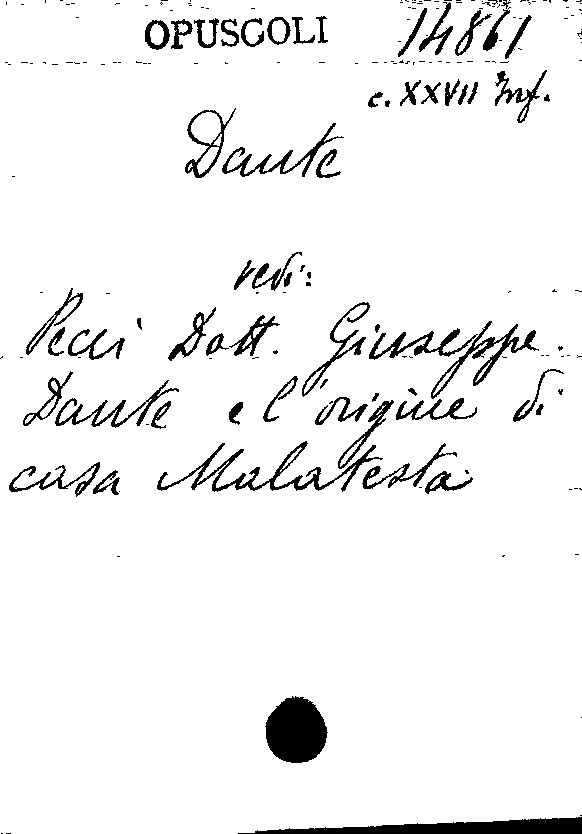 OPUSCOLI 14861
c. XXVII Inf.
Dante
vedi:
Pecci Dott. Giuseppe.
Dante e l'origine di
casa Malatesta